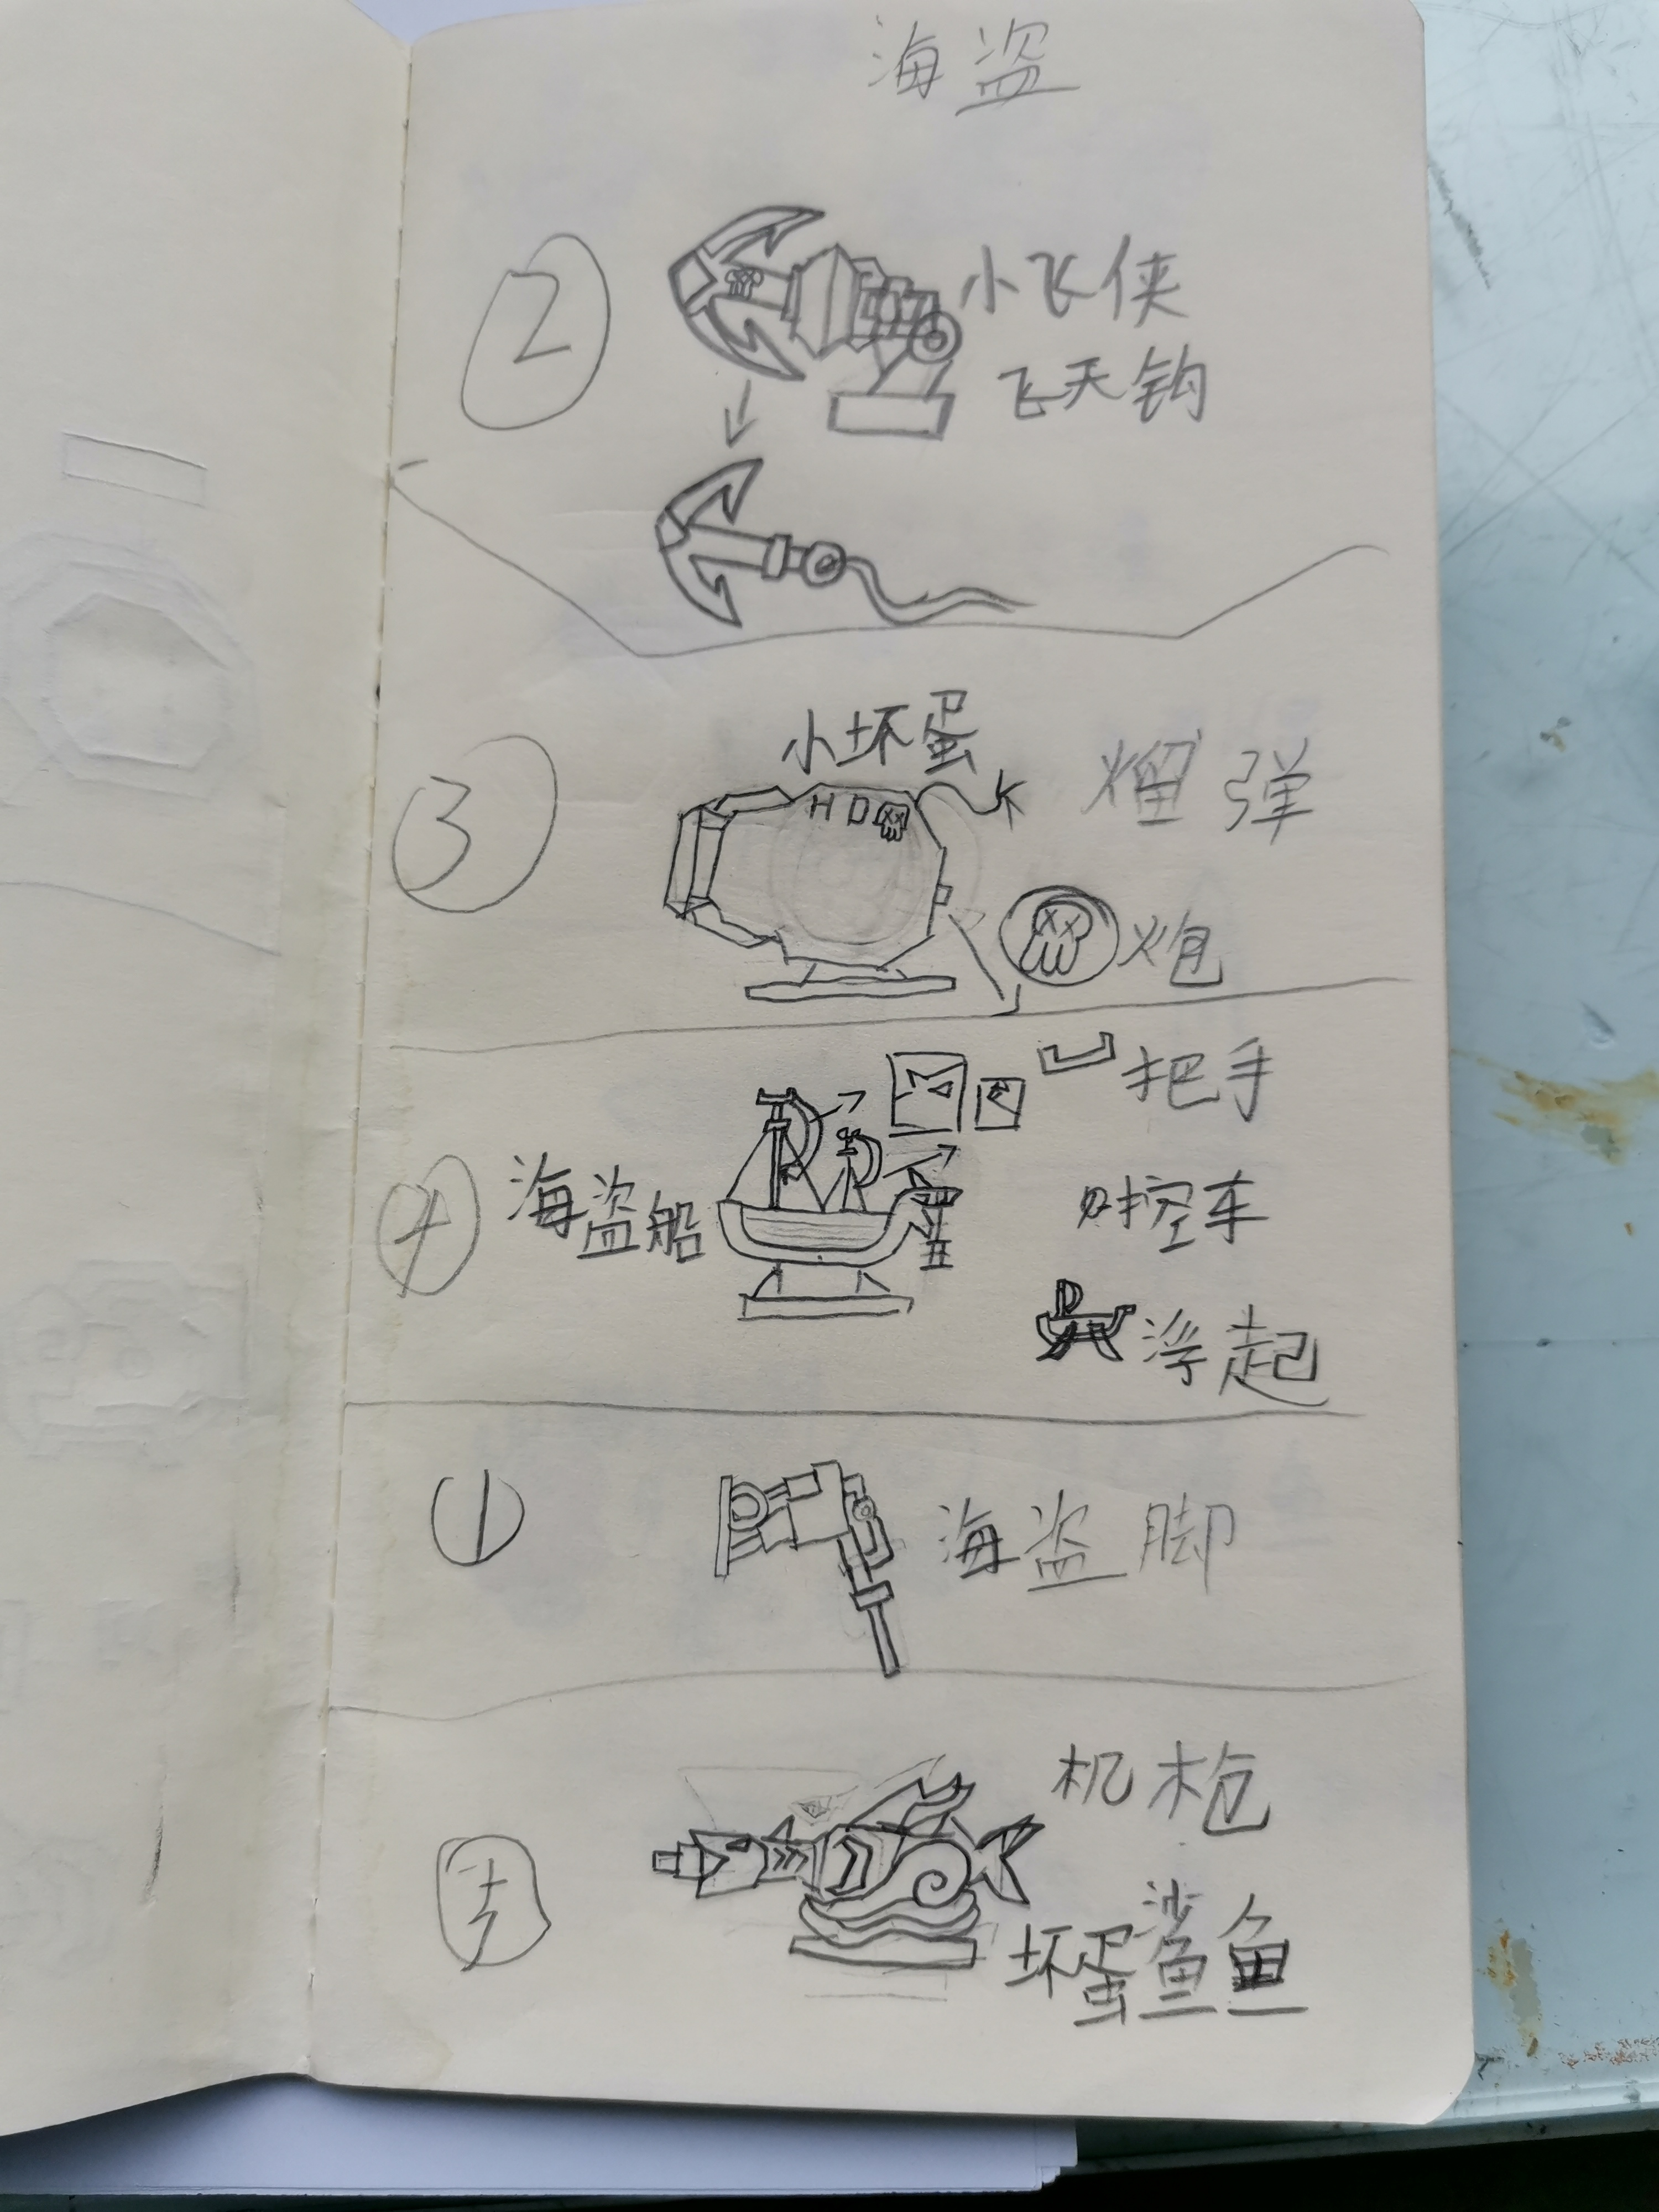 海盗
②
小飞侠
飞天钩
③
小坏蛋
HD
榴弹
炮
④
海盗船
把手
时控车
浮起
①
海盗脚
机枪
坏蛋鲨鱼